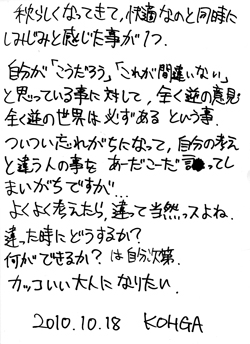 秋らしくなってきて、快適なのと同時に
しみじみと感じた事が1つ.
自分が「こうだろう」「これが間違いない」
と思っている事に対して、全く逆の意見
全く逆の世界は必ずある という事.
ついつい忘れがちになって、自分の考え
と違う人の事を あーだこーだ 言ってし
まいがちですが…
よくよく考えたら、違って当然っスよね.
違った時にどうするか?
何ができるか? は自分次第.
カッコいい大人になりたい.
2010.10.18 KOHGA